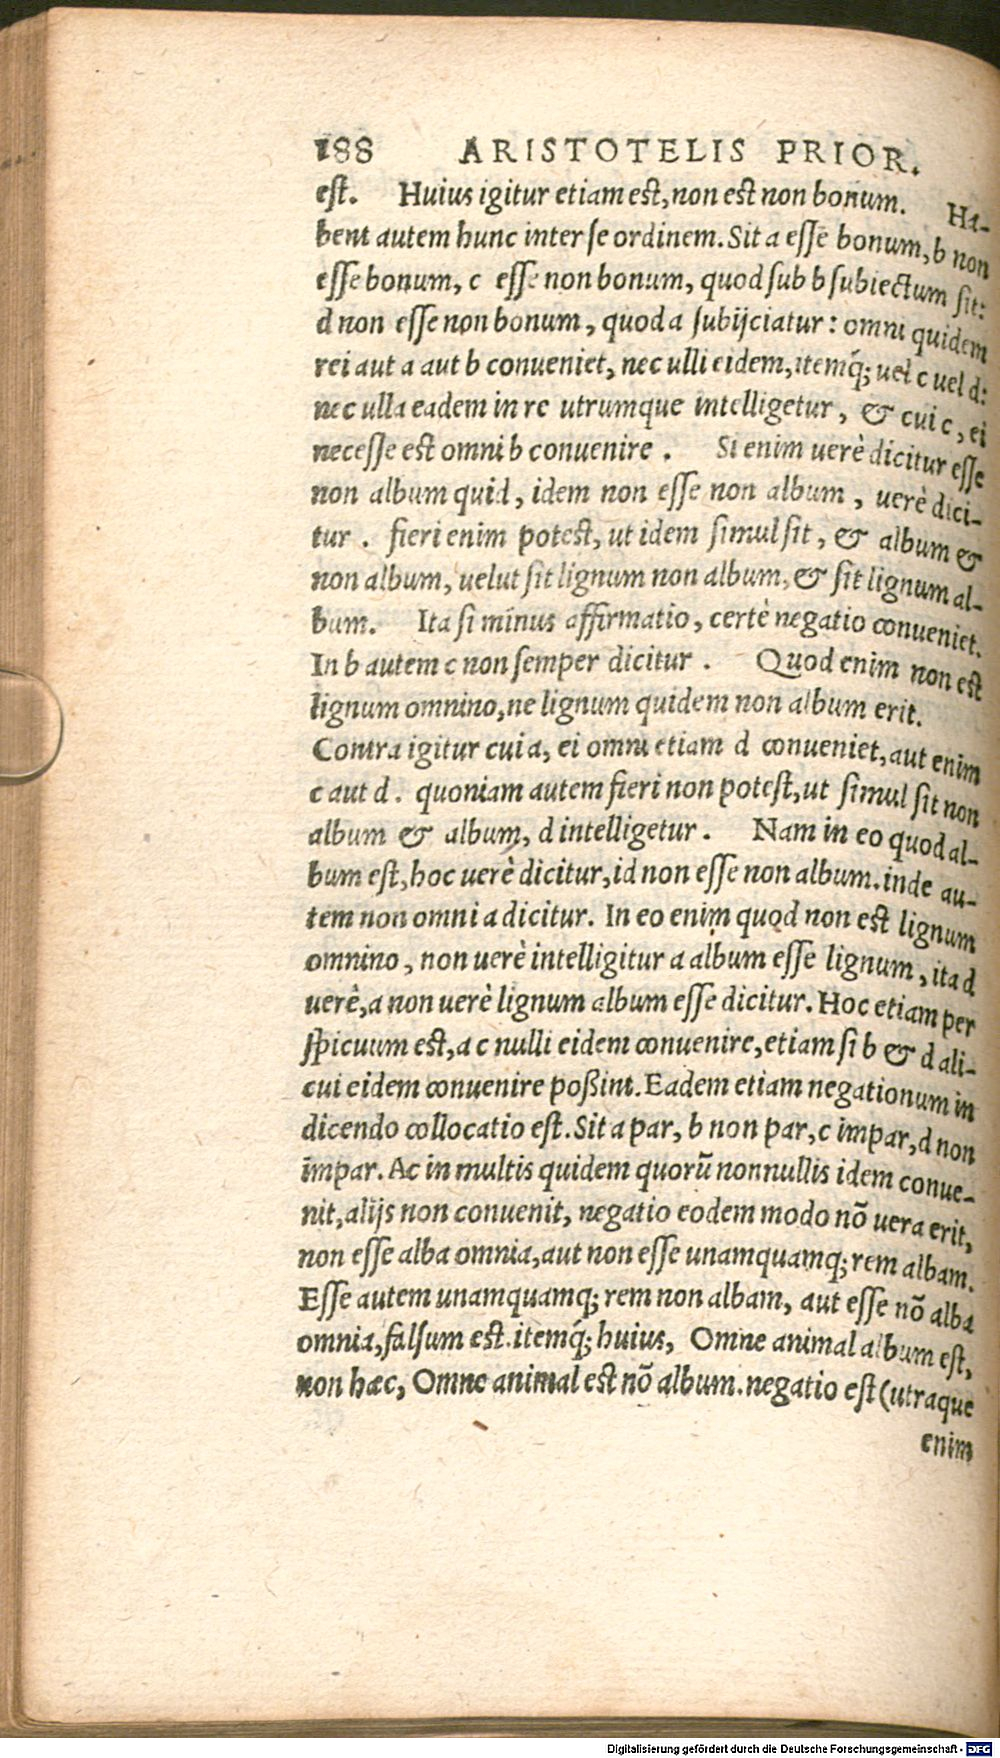 188 ARISTOTELIS PRIOR.
est. Huius igitur etiam est, non est non bonum. Ha-
bent autem hunc inter se ordinem. Sit a esse bonum, b non
esse bonum, c esse non bonum, quod sub b subiectum sit:
d non esse non bonum, quod a subijciatur: omni quidem
rei aut a aut b conueniet, nec ulli eidem, itemq́; uel c uel d:
nec ulla eadem in re utrumque intelligetur, & cui c, ei
necesse est omni b conuenire. Si enim uerè dicitur esse
non album quid, idem non esse non album, uerè dici-
tur. fieri enim potest, ut idem simul sit, & album &
non album, uelut sit lignum non album, & sit lignum al-
bum. Ita si minus affirmatio, certè negatio conueniet.
In b autem c non semper dicitur. Quod enim non est
lignum omnino, ne lignum quidem non album erit.
Contra igitur cui a, ei omni etiam d conueniet, aut enim
c aut d. quoniam autem fieri non potest, ut simul sit non
album & album, d intelligetur. Nam in eo quod al-
bum est, hoc uerè dicitur, id non esse non album. inde au-
tem non omni a dicitur. In eo enim quod non est lignum
omnino, non uerè intelligitur a album esse lignum, ita d
uerè, a non uerè lignum album esse dicitur. Hoc etiam per
spicuum est, a c nulli eidem conuenire, etiam si b & d ali-
cui eidem conuenire poßint. Eadem etiam negationum in
dicendo collocatio est. Sit a par, b non par, c impar, d non
impar. Ac in multis quidem quorū nonnullis idem conue-
nit, alijs non conuenit, negatio eodem modo nō uera erit,
non esse alba omnia, aut non esse unamquamq; rem albam.
Esse autem unamquamq; rem non albam, aut esse nō alba
omnia, falsum est. itemq́; huius, Omne animal album est,
non hæc, Omne animal est nō album. negatio est (utraque
enim
Digitalisierung gefördert durch die Deutsche Forschungsgemeinschaft - DFG